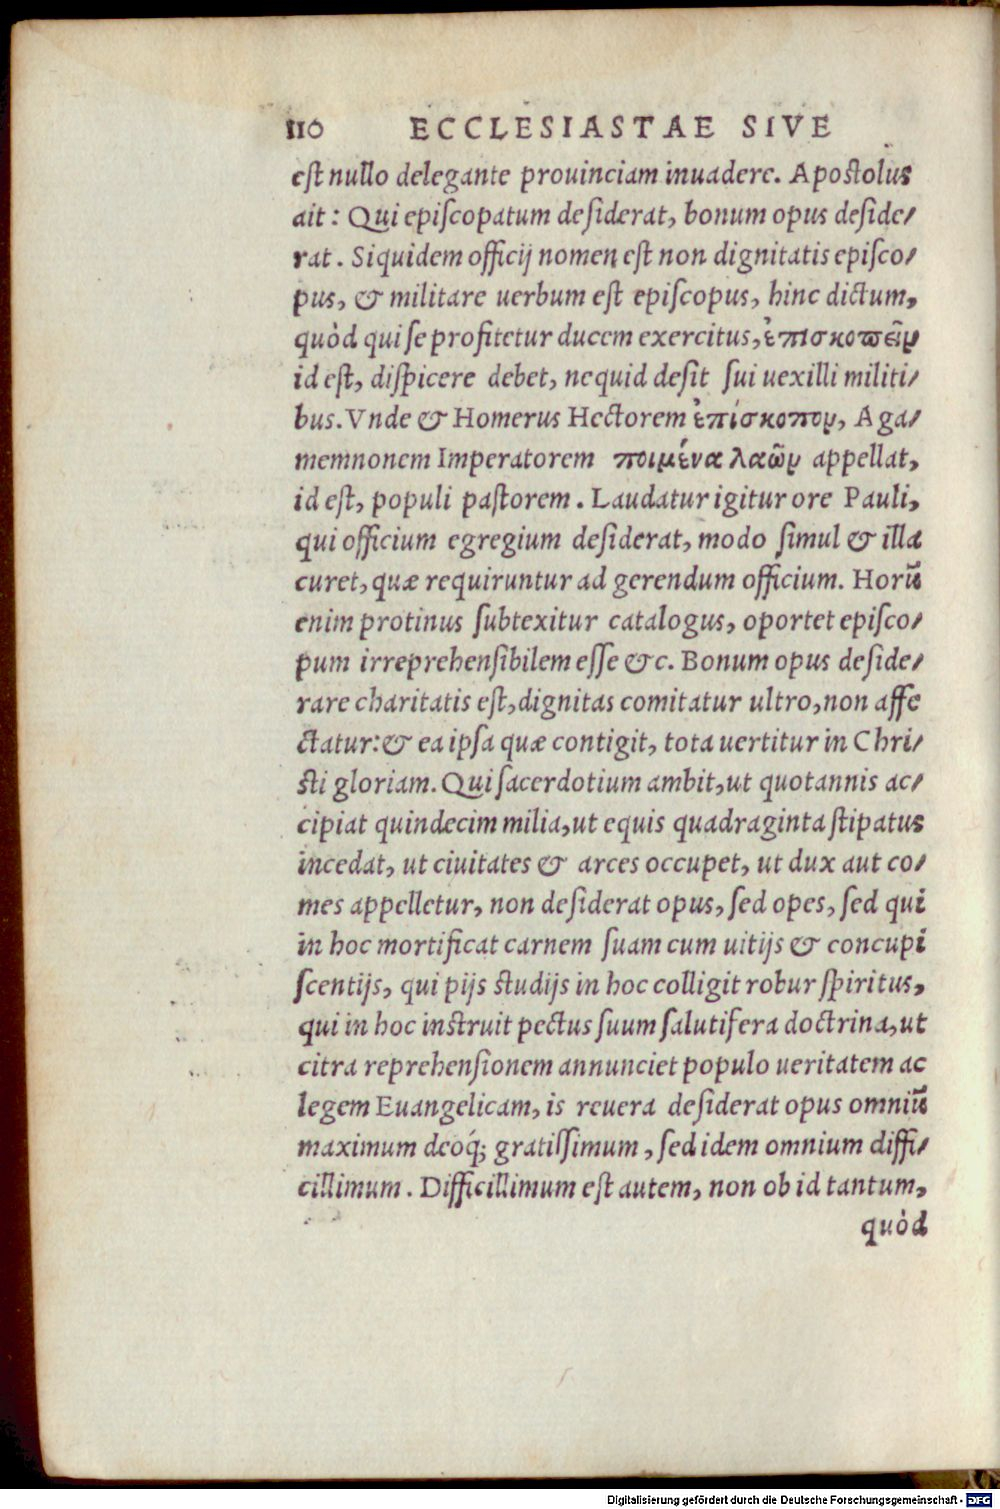 110 ECCLESIASTAE SIVE
est nullo delegante prouinciam inuadere. Apostolus
ait: Qui episcopatum desiderat, bonum opus deside/
rat. Siquidem officij nomen est non dignitatis episco/
pus, & militare uerbum est episcopus, hinc dictum,
quòd qui se profitetur ducem exercitus, ἐπισκοπεῖν
id est, dispicere debet, nequid desit sui uexilli militi/
bus. Vnde & Homerus Hectorem ἐπίσκοπον, Aga/
memnonem Imperatorem ποιμένα λαῶν appellat,
id est, populi pastorem. Laudatur igitur ore Pauli,
qui officium egregium desiderat, modo simul & illa
curet, quæ requiruntur ad gerendum officium. Horū
enim protinus subtexitur catalogus, oportet episco/
pum irreprehensibilem esse &c. Bonum opus deside/
rare charitatis est, dignitas comitatur ultro, non affe
ctatur: & ea ipsa quæ contigit, tota uertitur in Chri/
sti gloriam. Qui sacerdotium ambit, ut quotannis ac/
cipiat quindecim milia, ut equis quadraginta stipatus
incedat, ut ciuitates & arces occupet, ut dux aut co/
mes appelletur, non desiderat opus, sed opes, sed qui
in hoc mortificat carnem suam cum uitijs & concupi
scentijs, qui pijs studijs in hoc colligit robur spiritus,
qui in hoc instruit pectus suum salutifera doctrina, ut
citra reprehensionem annunciet populo ueritatem ac
legem Euangelicam, is reuera desiderat opus omniū
maximum deoq́; gratissimum, sed idem omnium diffi/
cillimum. Difficillimum est autem, non ob id tantum,
quòd
Digitalisierung gefördert durch die Deutsche Forschungsgemeinschaft - DFG